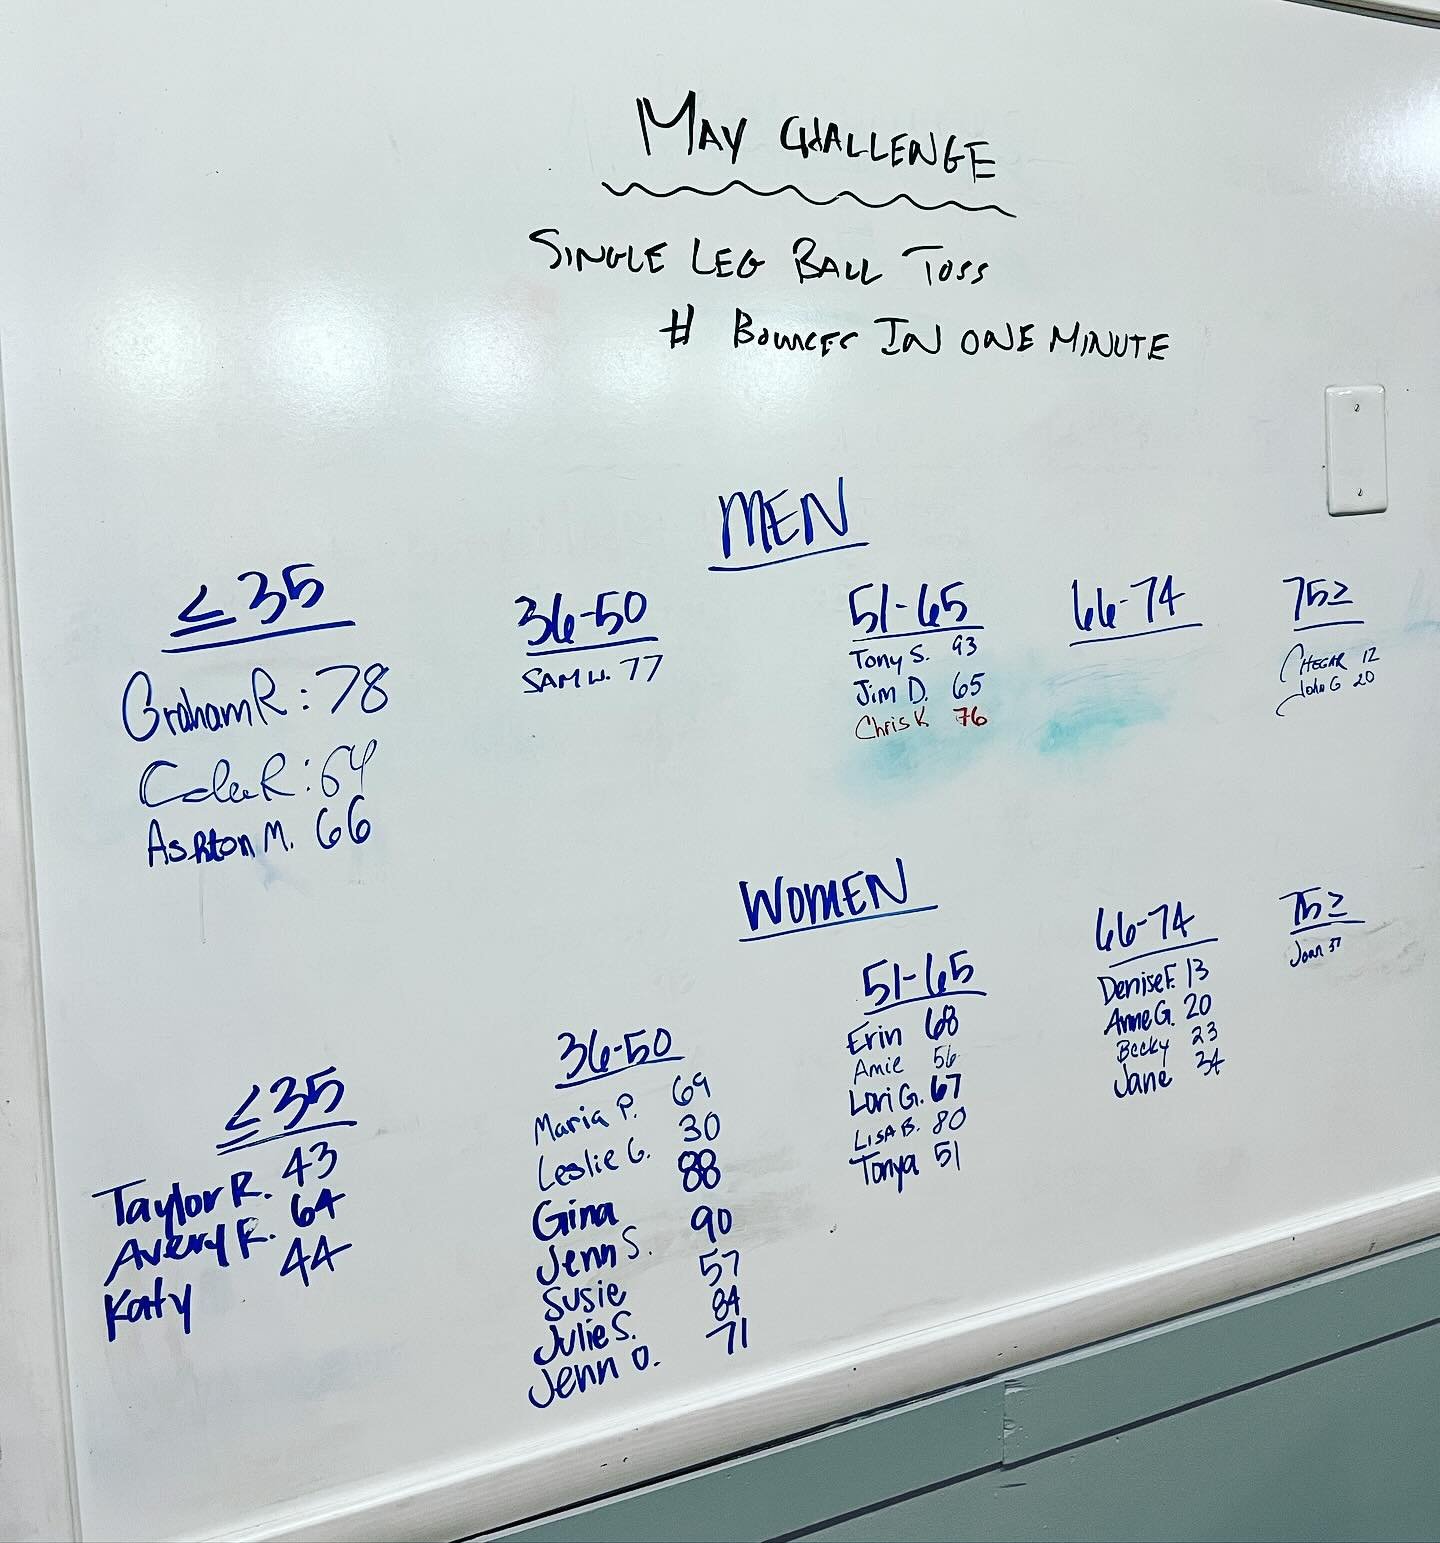 MAY CHALLENGE
SINGLE LEG BALL TOSS
# BOUNCES IN ONE MINUTE
MEN
≤35
Graham R: 78
Cole R: 64
Ashton M. 66
36-50
SAM W. 77
51-65
Tony S. 93
Jim D. 65
Chris K 76
66-74
75≥
12
John G 20
WOMEN
≤35
Taylor R. 43
Avery F. 64
Katy 44
36-50
Maria P. 69
Leslie G. 30
Gina 88
Jenn S. 90
Susie 57
Julie S. 84
Jenn O. 71
51-65
Erin 68
Amie 56
Lori G. 67
LISA B. 80
Tonya 51
66-74
Denise F. 13
Anne G. 20
Becky 23
Jane 34
75≥
Joan 37